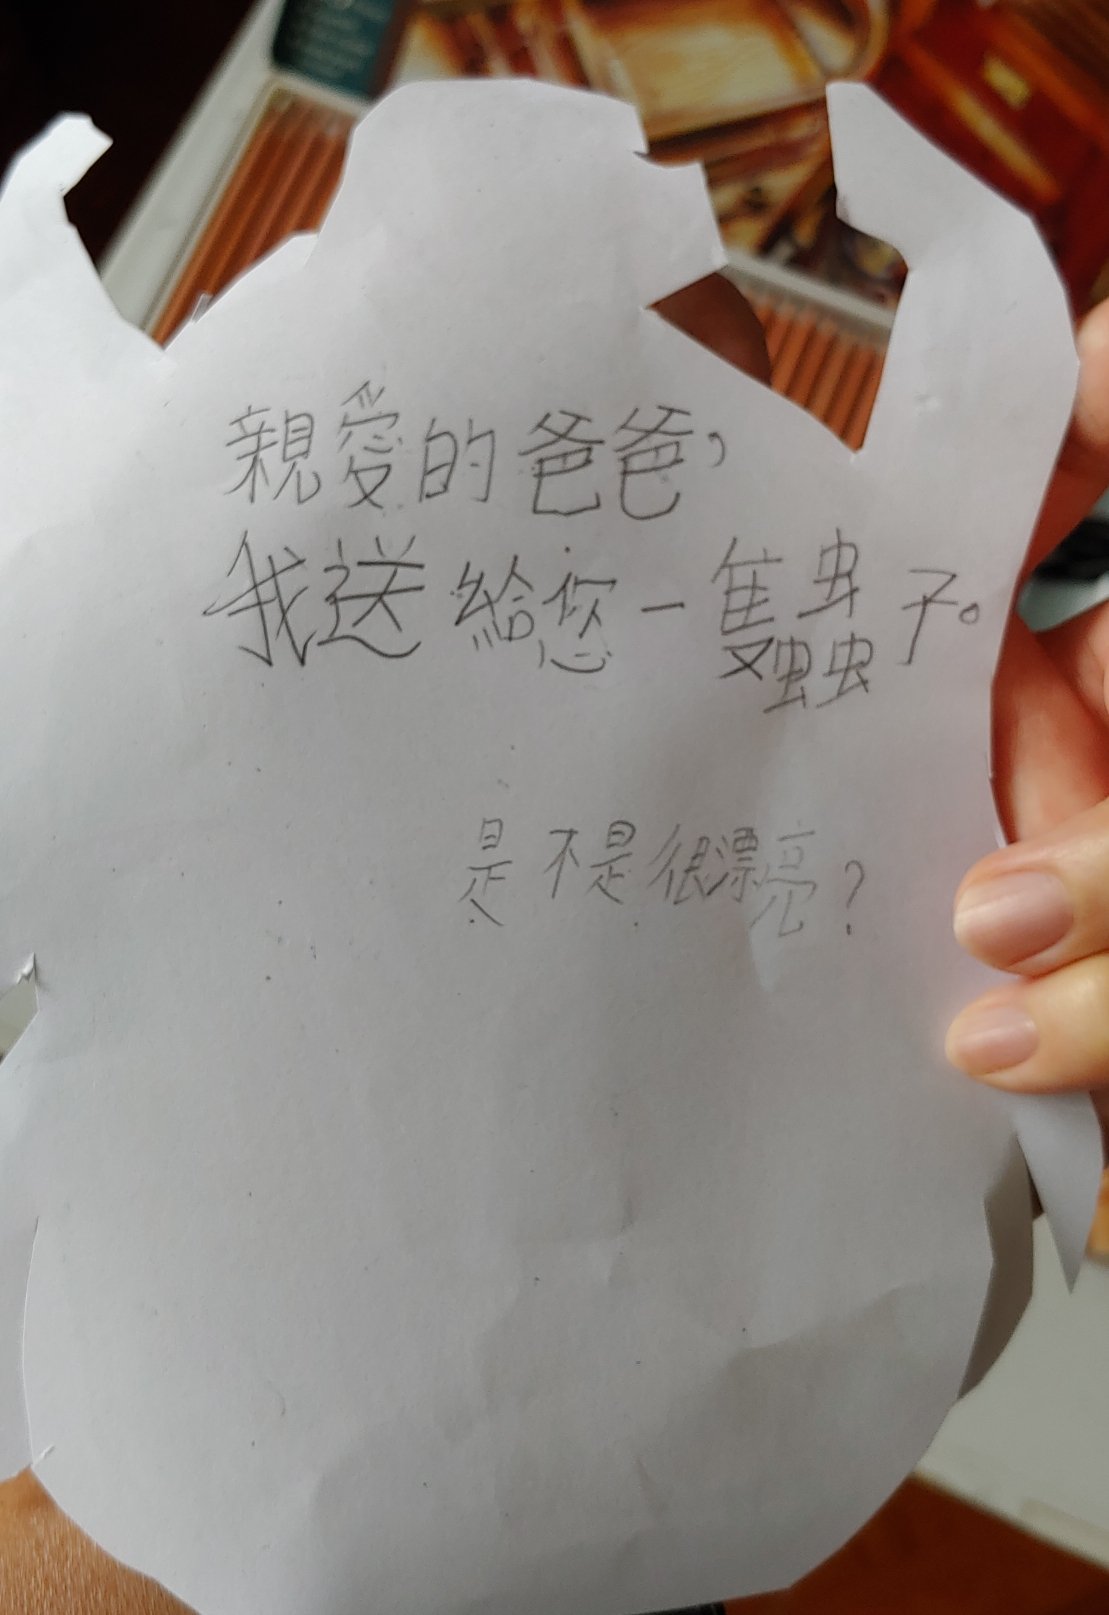 親愛的爸爸，
我送給您一隻蟲子。
是不是很漂亮？